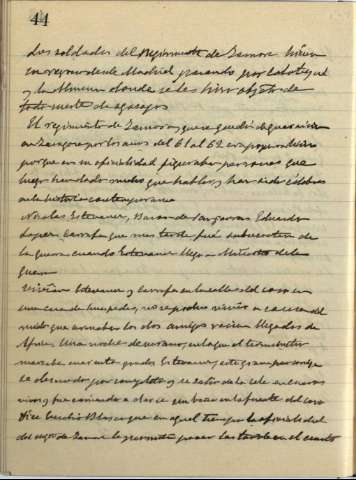 44
Los soldados del Regimiento de Zamora
su regreso desde Madrid pasando por Calatayud
y la Almunia donde se les hizo objeto de
toda suerte de agasajos
El regimiento de Zamora, que se quedó de guarnición
en Zaragoza por los años del 61 al 62 era
porque en su oficialidad figuraban personas que
luego han dado mucho que hablar y han sido célebres
en la historia contemporanea
Nicolas Estevanez, Eduardo
Lopez Carrafa que mas tarde fué subsecretario de
la guerra cuando Estevanez llegó a Ministro de la
guerra
Vivian Estevanez y Carrafa en la calle del coso en
una casa de huespedes, y
ruido que armaban los dos amigos recien llegados de
Africa. Una noche de verano, en la que el termometro
marcaba cuarenta grados Estevanez, y
se desnudó por completo y se echó a la calle en cueros
vivos y fue corriendo a darse un baño en la fuente del coso
Dice Eusebio Blasco que en aquel tiempo la oficialidad
del regto de Zamora la permitía pasar las tardes en el cuarto